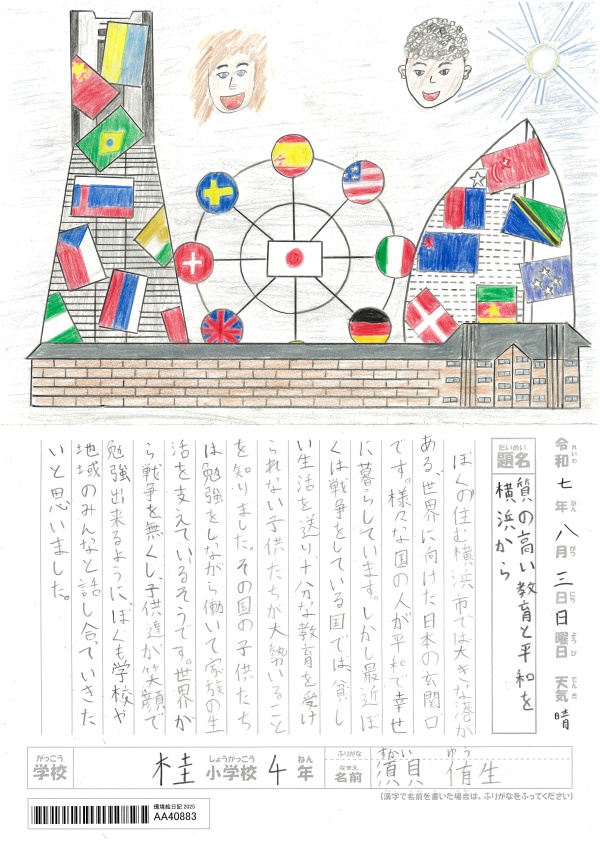 令和 七年 八月 三日 日曜日 天気 晴
題名
質の高い教育と平和を
横浜から
ぼくの住む横浜市では大きな港が
ある、世界に向けた日本の玄関口
です。様々な国の人が平和で幸せ
に暮らしています。しかし最近ぼ
くは戦争をしている国では、貧し
い生活を送り十分な教育を受け
られない子供たちが大勢いること
を知りました。その国の子供たち
は勉強をしながら働いて家族の生
活を支えているそうです。世界か
ら戦争を無くし、子供達が笑顔で
勉強出来るようにぼくも学校や
地域のみんなと話し合っていきた
いと思いました。
がっこう しょうがっこう ねん
学校 桂 小学校 4 年
ふりがな すかい ゆう
なまえ
名前 須貝 侑生
(漢字で名前を書いた場合は、ふりがなをふってください)
環境絵日記 2025
AA40883